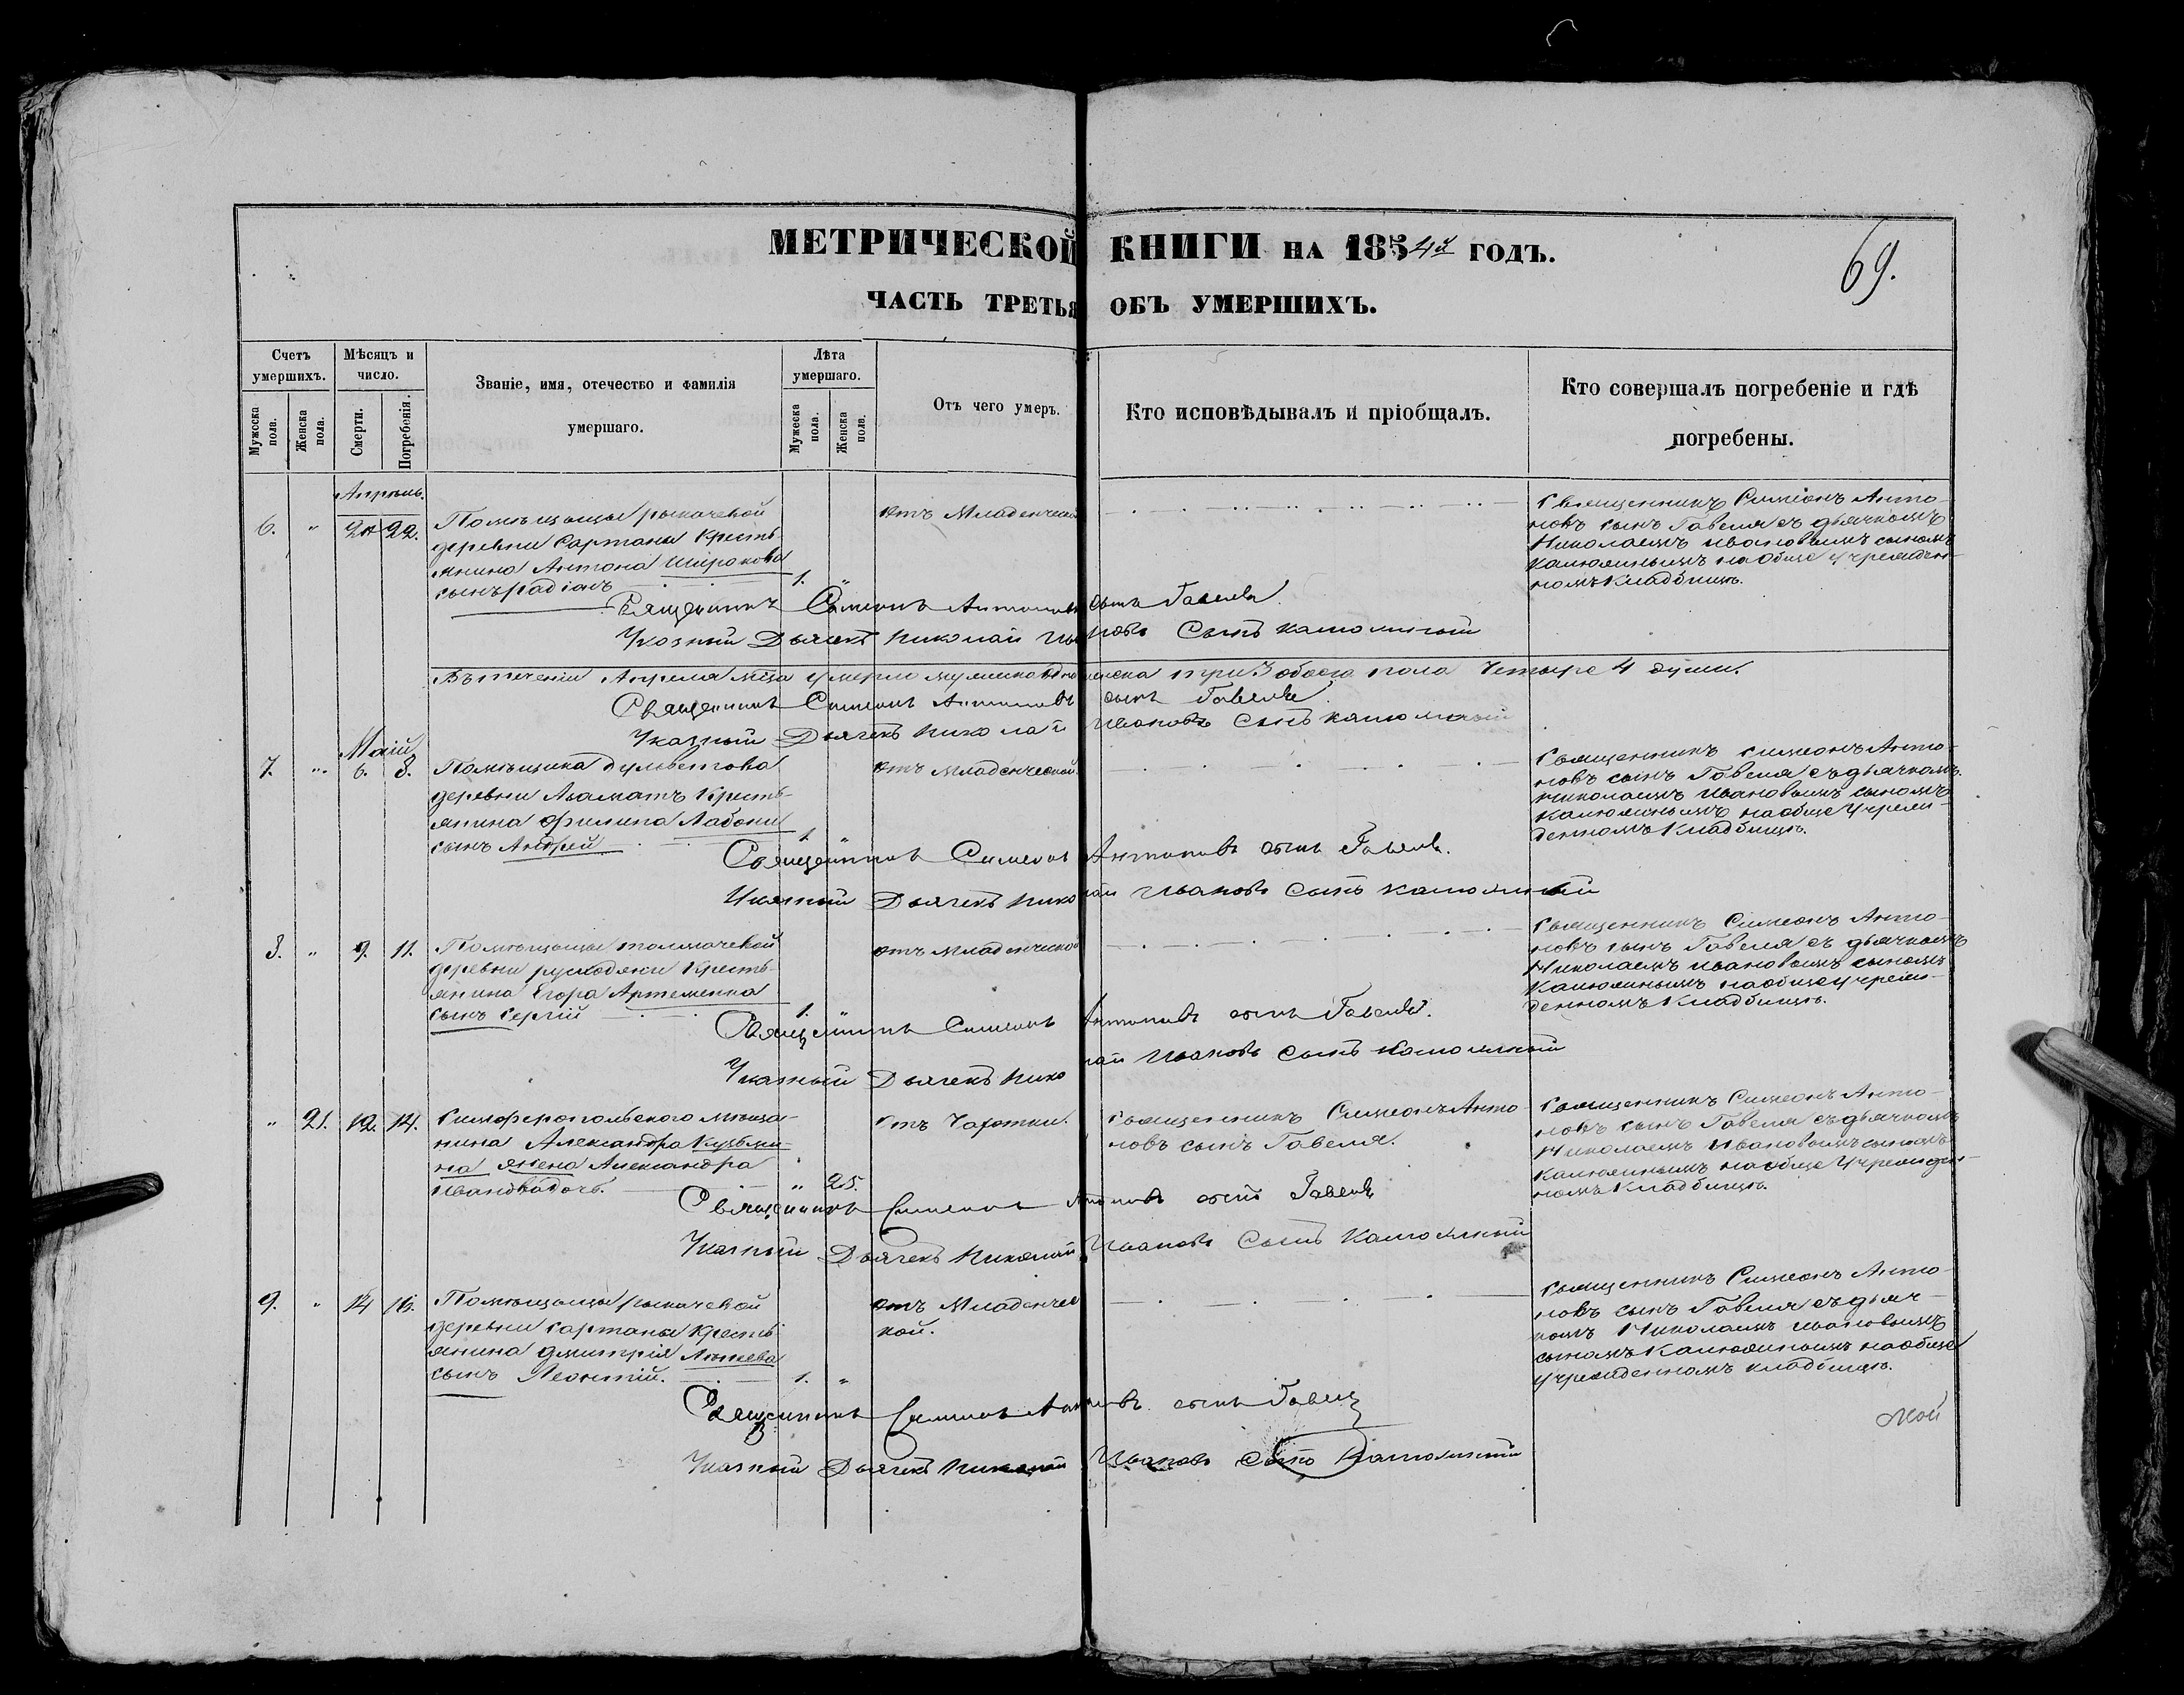 МЕТРИЧЕСКОЙ КНИГИ НА 1854й ГОДЪ.
69.
ЧАСТЬ ТРЕТЬЯ ОБЪ УМЕРШИХЪ.
Счетъ умершихъ.
Мужеска пола.
Женска пола.
Мѣсяцъ и число.
Смерти.
Погребенія.
Званіе, имя, отечество и фамилія умершаго.
Лѣта умершаго.
Мужеска пола.
Женска пола.
Отъ чего умеръ.
Кто исповѣдывалъ и пріобщалъ.
Кто совершалъ погребеніе и гдѣ погребены.
Апрѣль.
6. " 22.
Помѣщицы рыкачевой
деревни Сартаны Кресть-
янина Антона Широкова
сынъ радіонъ 1. "
отъ Младенческой
Священникъ Симеонъ Анто-
новъ сынъ Гавеля съ дьячкомъ
Николаемъ Ивановымъ сыномъ
на обще учрежден-
номъ Кладбищѣ.
Священникъ Симеонъ Антоновъ сынъ Гавеля
Указный Дьячекъ Николай Ивановъ Сынъ
Въ теченіи Апреля мца умерло три 3 обоего пола Четыре 4 души.
Священникъ Симеонъ Антоновъ сынъ Гавеля
Указный Дьячекъ Николай Ивановъ Сынъ
Маій
7. " 6. 8.
Помѣщика
деревни Азаматъ Кресть-
янина Филипа
сынъ Андрей 1. "
отъ младенческой
Священникъ симеонъ Анто-
новъ сынъ Гавеля съ дьячкомъ
николаемъ Ивановымъ сыномъ
на обще Учреж-
денномъ Кладбищѣ.
Священникъ Симеонъ Антоновъ сынъ Гавеля.
Указный Дьячекъ Николай Ивановъ Сынъ
8. " 9. 11.
Помѣщицы толмачевой
деревни Кресть-
янина Егора Артеменка
сынъ Сергій 1. "
отъ младенческой
Священникъ Симеонъ Анто-
новъ сынъ Гавеля съ дьячкомъ
Николаемъ Ивановымъ сыномъ
на обще учреж-
денномъ Кладбищѣ.
Священникъ Симеонъ Антоновъ сынъ Гавеля.
Указный Дьячекъ Николай Ивановъ Сынъ
" 21. 12. 14.
Симферопольского мѣща-
нина Александра Кузьми-
на жена Александра
Иванова дочь. " 25.
отъ Чахотки.
Священникъ Симеонъ Анто-
новъ сынъ Гавеля.
Священникъ Симеонъ Анто-
новъ сынъ Гавеля съ дьячкомъ
Николаемъ Ивановымъ сыномъ
на обще Учрежден-
номъ Кладбищѣ.
Священникъ Симеонъ Антоновъ сынъ Гавеля
Указный Дьячекъ Николай Ивановъ Сынъ
9. " 14 16.
Помѣщицы рыкачевой
деревни сартаны Кресть-
янина дмитрія
сынъ Леонтій. 1. "
отъ Младенчес
кой.
Священникъ Симеонъ Анто-
новъ сынъ Гавеля съ дьяч-
комъ Николаемъ Ивановымъ
сыномъ на обще
учрежденномъ кладбищѣ.
Священникъ Симеонъ Антоновъ сынъ Гавеля
Указный Дьячекъ Николай Ивановъ Сынъ